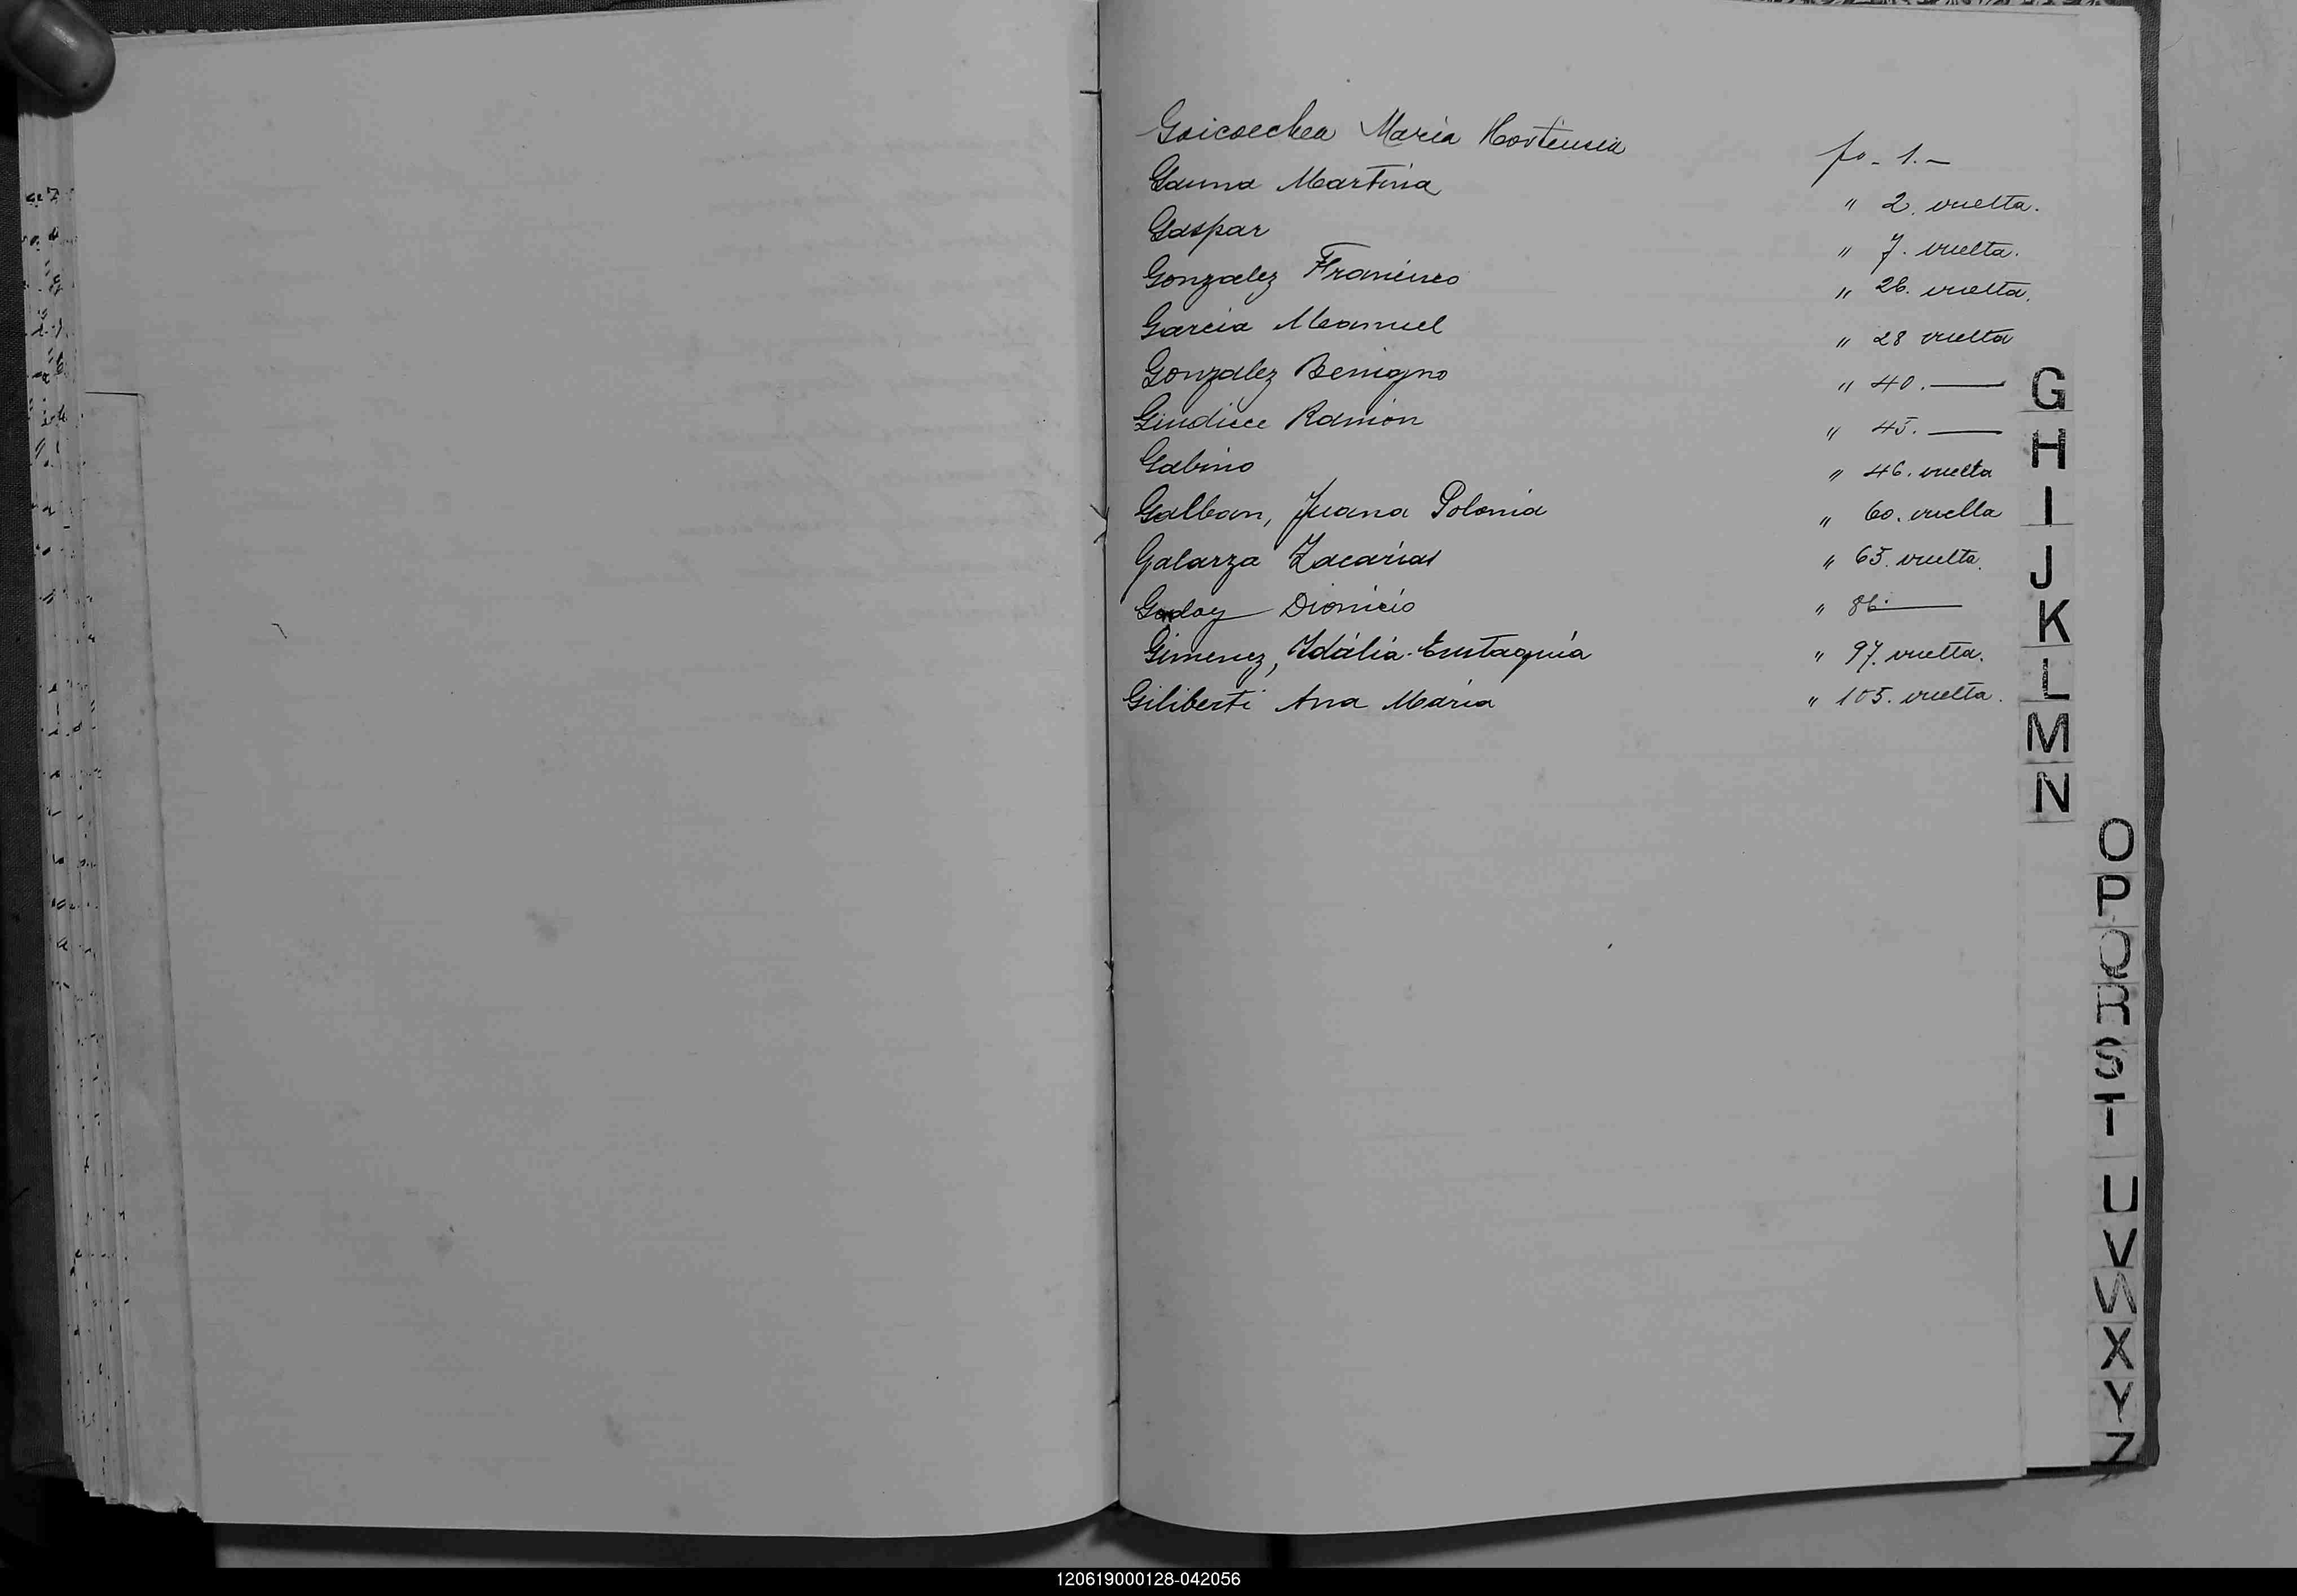 Goicoechea Maria Hortensia fo - 1. -
Gauna Martina " 2. vuelta.
Gaspar " 7. vuelta.
Gonzalez Francisco " 26. vuelta.
Garcia Manuel " 28 vuelta
Gonzalez Benigno " 40. —
Giudice Ramón " 45. —
Gabino " 46. vuelta
Galban, Juana Polonia " 60. vuelta
Galarza Zacarias " 65. vuelta.
Godoy Dionicio " 86. —
Gimenez, Idália Eustaquia " 97. vuelta.
Giliberti Ana Maria " 105. vuelta.
G
H
I
J
K
L
M
N
O
P
Q
R
S
T
U
V
W
X
Y
Z
120619000128-042056